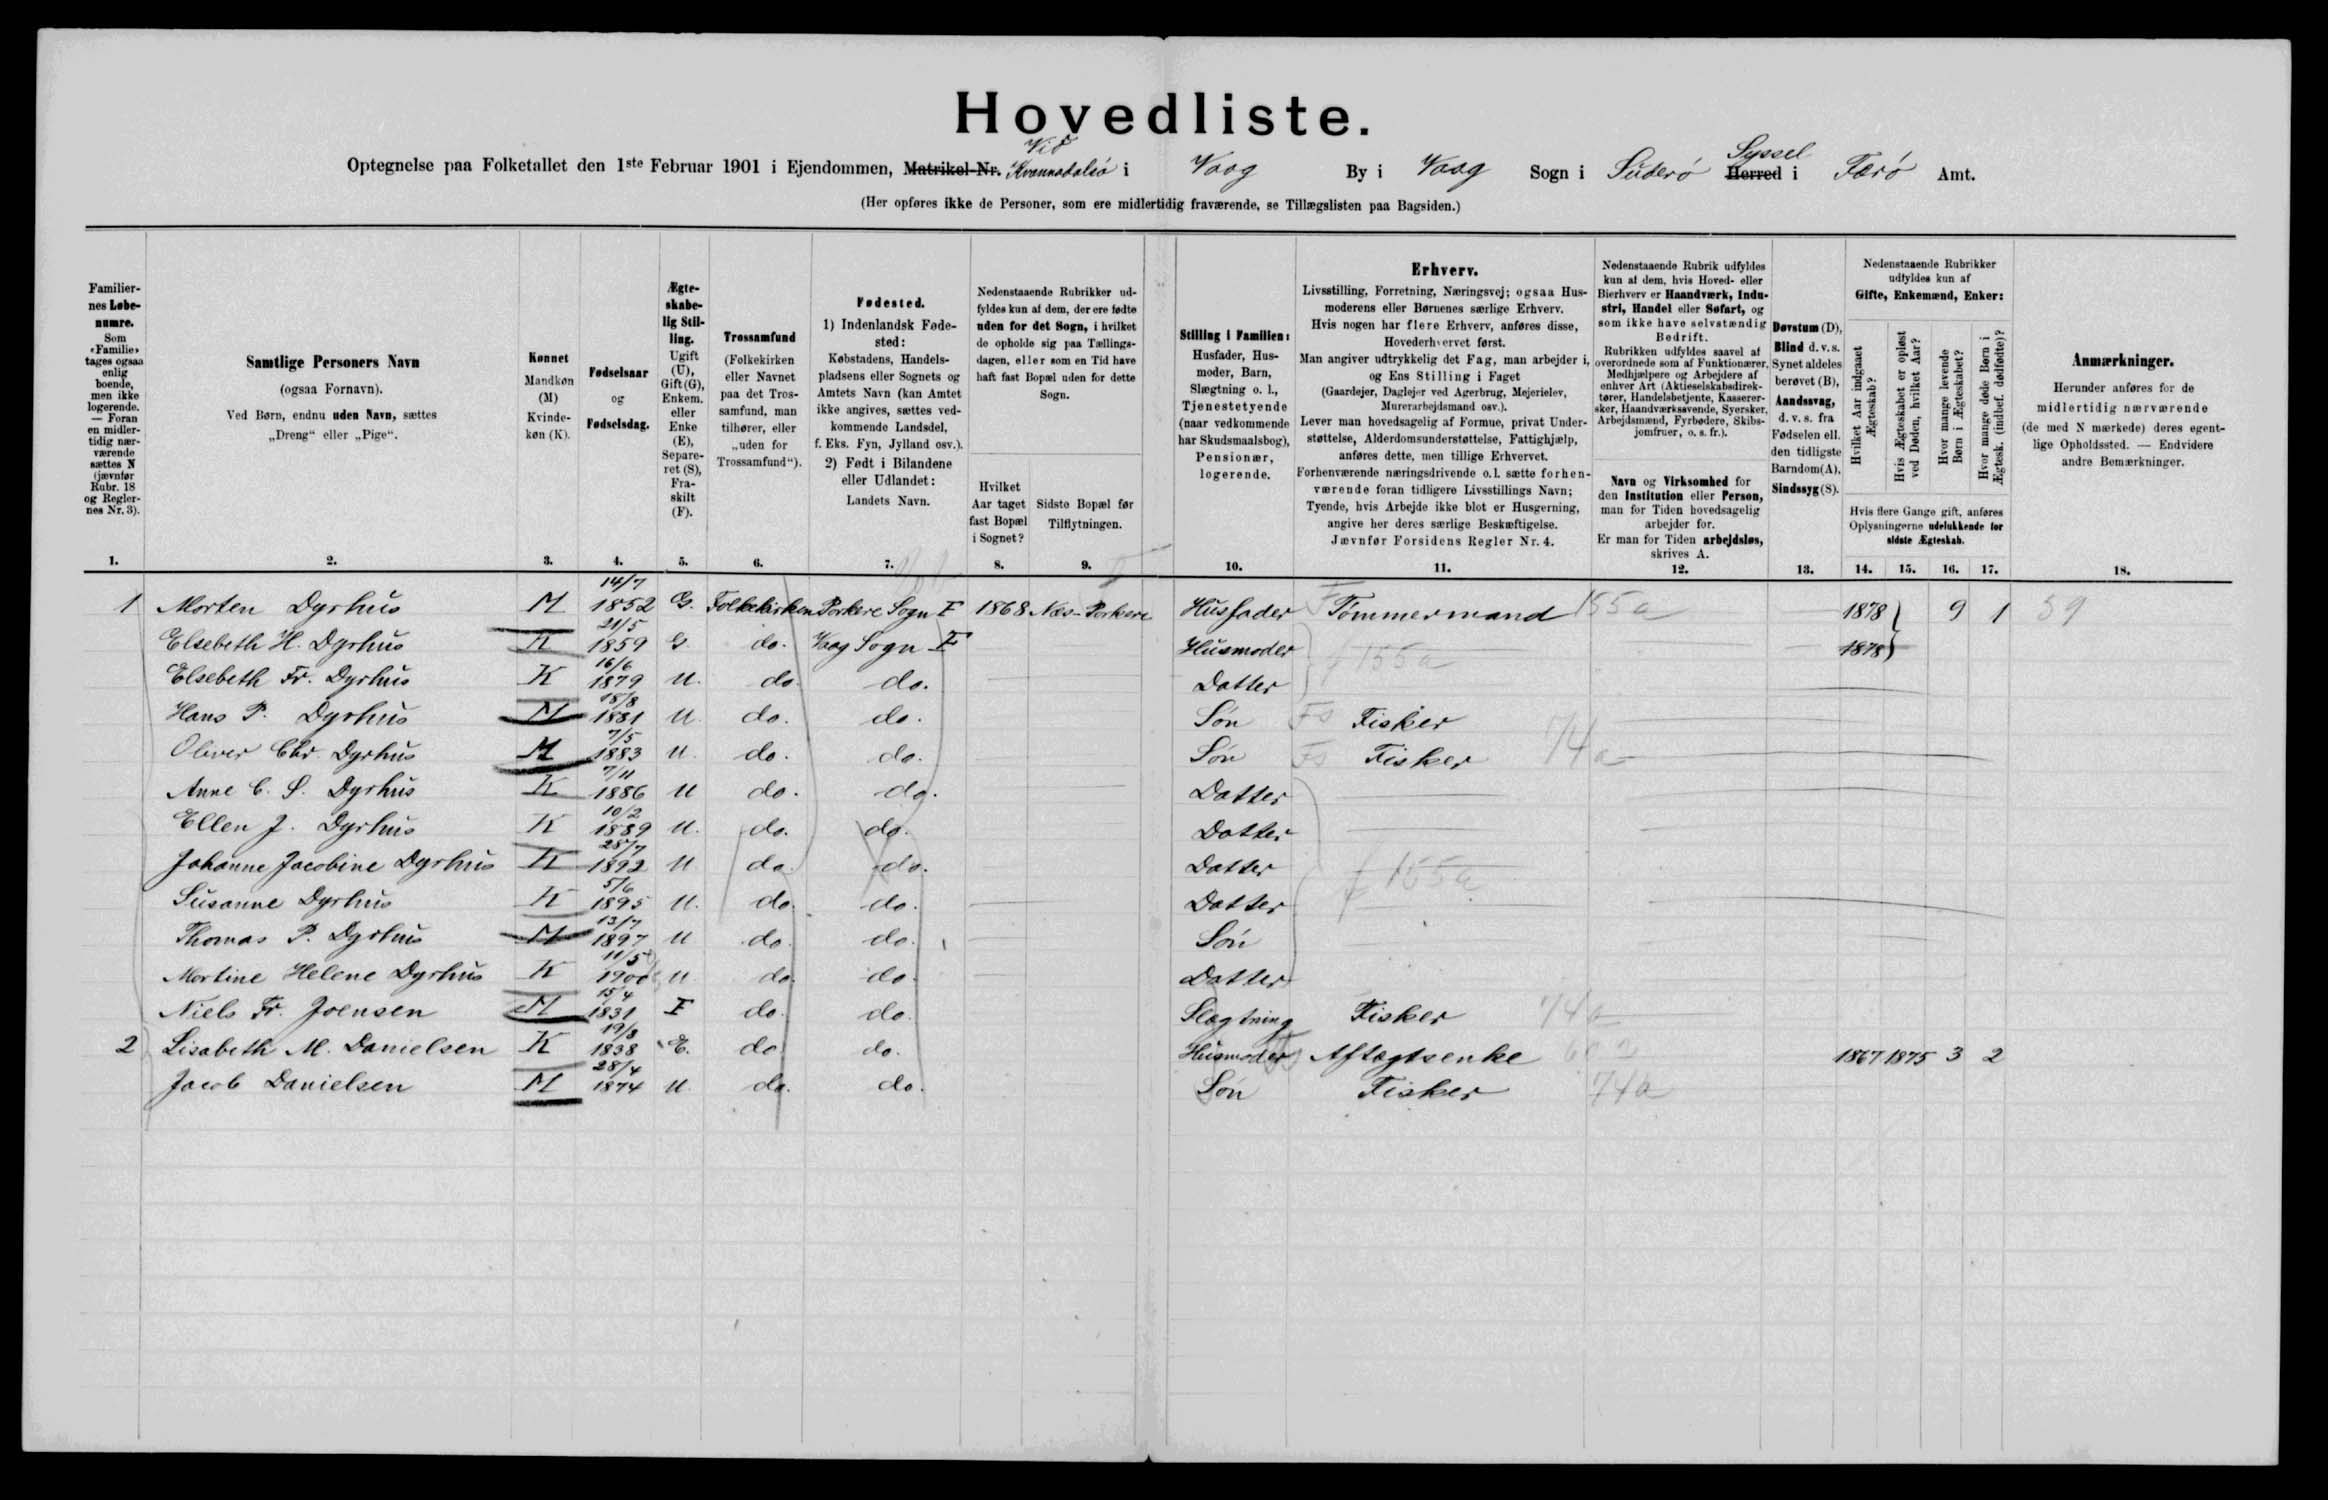 Hovedliste.
Optegnelse paa Folketallet den 1ste Februar 1901 i Ejendommen, Matrikel-Nr. Vid i Vaag By i Vaag Sogn i Suderö Herred Syssel i Færö Amt.
(Her opføres ikke de Personer, som ere midlertidig fraværende, se Tillægslisten paa Bagsiden.)
Familiernes Løbenumre. Som «Familie» tages ogsaa enlig boende, men ikke logerende. — Foran en midlertidig nærværende sættes N (jævnfør Rubr. 18 og Reglernes Nr. 3).
Samtlige Personers Navn
(ogsaa Fornavn).
Ved Børn, endnu uden Navn, sættes
„Dreng“ eller „Pige“.
Kønnet
Mandkøn (M)
Kvindekøn (K).
Fødselsaar
og
Fødselsdag.
Ægteskabelig Stilling.
Ugift (U), Gift (G), Enkem. eller Enke (E), Separeret (S), Fraskilt (F).
Trossamfund
(Folkekirken eller Navnet paa det Trossamfund, man tilhører, eller „uden for Trossamfund“).
Fødested.
1) Indenlandsk Fødested:
Købstadens, Handelspladsens eller Sognets og Amtets Navn (kan Amtet ikke angives, sættes vedkommende Landsdel, f. Eks. Fyn, Jylland osv.).
2) Født i Bilandene eller Udlandet:
Landets Navn.
Nedenstaaende Rubrikker udfyldes kun af dem, der ere fødte uden for det Sogn, i hvilket de opholde sig paa Tællingsdagen, eller som en Tid have haft fast Bopæl uden for dette Sogn.
Hvilket Aar taget fast Bopæl i Sognet?
Sidste Bopæl før Tilflytningen.
Stilling i Familien:
Husfader, Husmoder, Barn, Slægtning o. l., Tjenestetyende (naar vedkommende har Skudsmaalsbog), Pensionær, logerende.
Erhverv.
Livsstilling, Forretning, Næringsvej; ogsaa Husmoderens eller Børnenes særlige Erhverv.
Hvis nogen har flere Erhverv, anføres disse, Hovederhvervet først.
Man angiver udtrykkelig det Fag, man arbejder i, og Ens Stilling i Faget
(Gaardejer, Daglejer ved Agerbrug, Mejerielev, Murerarbejdsmand osv.).
Lever man hovedsagelig af Formue, privat Understøttelse, Alderdomsunderstøttelse, Fattighjælp, anføres dette, men tillige Erhvervet.
Forhenværende næringsdrivende o. l. sætte forhenværende foran tidligere Livsstillings Navn;
Tyende, hvis Arbejde ikke blot er Husgerning, angive her deres særlige Beskæftigelse.
Jævnfør Forsidens Regler Nr. 4.
Nedenstaaende Rubrik udfyldes kun af dem, hvis Hoved- eller Bierhverv er Haandværk, Industri, Handel eller Søfart, og som ikke have selvstændig Bedrift.
Rubrikken udfyldes saavel af overordnede som af Funktionærer, Medhjælpere og Arbejdere af enhver Art (Aktieselskabsdirektører, Handelsbetjente, Kasserersker, Haandværkssvende, Syersker, Arbejdsmænd, Fyrbødere, Skibsjomfruer, o. s. fr.).
Navn og Virksomhed for den Institution eller Person, man for Tiden hovedsagelig arbejder for.
Er man for Tiden arbejdsløs, skrives A.
Døvstum (D), Blind d. v. s. Synet aldeles berøvet (B), Aandssvag, d. v. s. fra Fødselen ell. den tidligste Barndom (A), Sindssyg (S).
Nedenstaaende Rubrikker udfyldes kun af
Gifte, Enkemænd, Enker:
Hvilket Aar indgaaet Ægteskab?
Hvis Ægteskabet er opløst ved Døden, hvilket Aar?
Hvor mange levende Børn i Ægteskabet?
Hvor mange døde Børn i Ægtesk. (indbef. dødfødte)?
Hvis flere Gange gift, anføres Oplysningerne udelukkende for sidste Ægteskab.
Anmærkninger.
Herunder anføres for de midlertidig nærværende (de med N mærkede) deres egentlige Opholdssted. — Endvidere andre Bemærkninger.
1. 2. 3. 4. 5. 6. 7. 8. 9. 10. 11. 12. 13. 14. 15. 16. 17. 18.
1 Morten Dyrhus M 14/7 1852 G. Folkekirken Porkere Sogn F 1868 Næs-Porkere Husfader Tömmermand 155a 1878 9 1 59
Elsebeth H. Dyrhus K 21/5 1859 G. do. Vaag Sogn F Husmoder 155a 1878
Elsebeth Fr. Dyrhus K 16/6 1879 U. do. do. Datter
Hans P. Dyrhus M 18/8 1881 U. do. do. Sön Fs Fisker
Oliver Chr. Dyrhus M 7/5 1883 U. do. do. Sön Fs Fisker 74a
Anne C. S. Dyrhus K 7/11 1886 U do. do. Datter
Ellen J. Dyrhus K 10/2 1889 U. do. do. Datter
Johanne Jacobine Dyrhus K 28/7 1892 U do. do. Datter 155a
Susanne Dyrhus K 5/6 1895 U. do. do. Datter
Thomas P. Dyrhus M 13/7 1897 U do. do. Sön
Mortine Helene Dyrhus K 11/5 1900 U do. do. Datter
Niels Fr. Joensen M 15/4 1831 F do. do. Slægtning Fisker 74a
2 Lisabeth M. Danielsen K 19/8 1838 E. do do. Husmoder Aftægtsenke 1867 1875 3 2
Jacob Danielsen M 28/4 1874 U. do. do. Sön Fisker 74a